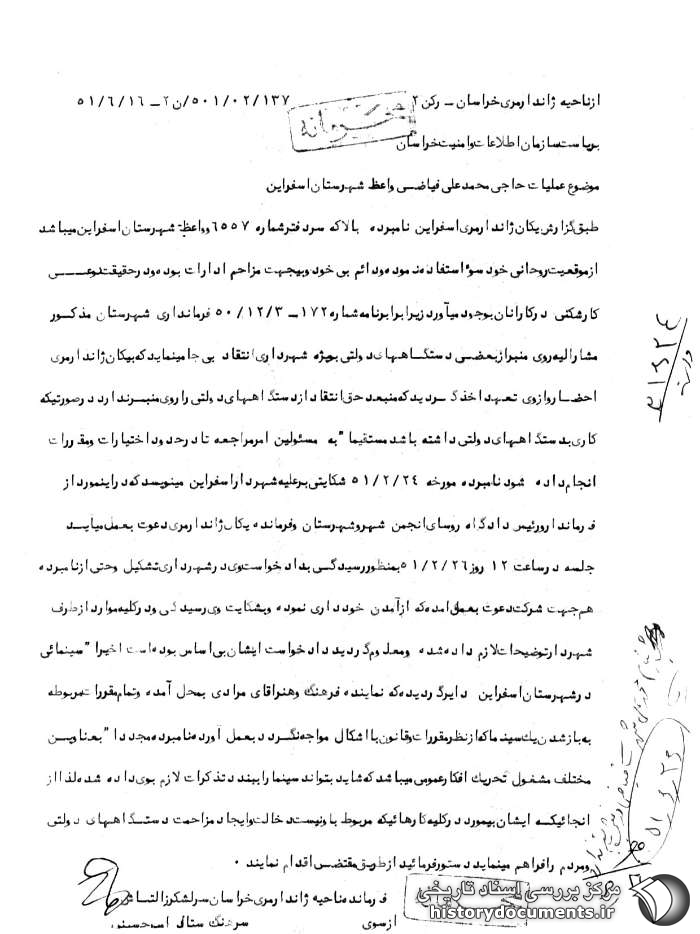 ازناحیه ژاندارمری خراسان ـ رکن ۲ ۵۰۱/۰۲/۱۳۷/ن۲ـ ۵۱/۶/۱۶
محرمانه
بریاست سازمان اطلاعات و امنیت خراسان
موضوع عملیات حاجی محمدعلی فیاضی واعظ شهرستان اسفراین
طبق گزارش یکان ژاندارمری اسفراین نامبرده بالا که سردفتر شماره ۶۵۵۷ و واعظ شهرستان اسفراین میباشد
از موقعیت روحانی خود سوء استفاده نموده و دائم بی خود و بیجهت مزاحم ادارات بوده و در حقیقت نوعی
کارشکنی در کار آنان بوجود میآورد زیرا برابر نامه شماره ۱۷۲ـ ۵۰/۱۲/۳ فرمانداری شهرستان مذکور
مشارالیه روی منبر از بعضی دستگاههای دولتی بویژه شهرداری انتقاد بی جا مینماید که بیکان ژاندارمری
احضار و از وی تعهد اخذ گردید که منبعد حق انتقاد از دستگاههای دولتی را روی منبر ندارد در صورتیکه
کاری بدستگاههای دولتی داشته باشد مستقیما" به مسئولین امر مراجعه تا در حدود اختیارات و مقررات
انجام داده شود نامبرده مورخه ۵۱/۲/۲۴ شکایتی بر علیه شهردار اسفراین مینویسد که در اینمورد از
فرماندار و رئیس دادگاه روسای انجمن شهر و شهرستان و فرمانده یکان ژاندارمری دعوت بعمل میاید
جلسه در ساعت ۱۲ روز ۵۱/۲/۲۶ بمنظور رسیدگی بدادخواست وی در شهرداری تشکیل و حتی از نامبرده
هم جهت شرکت دعوت بعمل امده که از آمدن خودداری نموده و بشکایت وی رسیدگی و در کلیه موارد از طرف
شهردار توضیحات لازم داده شده و معلوم گردید دادخواست ایشان بی اساس بوده است اخیرا" سینمائی
در شهرستان اسفراین دایر گردیده که نماینده فرهنگ و هنر اقای مرادی بمحل آمده و تمام مقررات مربوطه
به باز شدن یک سینما که از نظر مقررات و قانون با اشکال مواجه نگردد بعمل آورده نامبرده مجددا" بعناوین
مختلف مشغول تحریک افکار عمومی میباشد که شاید بتواند سینما را ببندد تذکرات لازم بوی داده شده لذا از
انجائیکه ایشان بیمورد در کلیه کارهائیکه مربوط باو نیست دخالت و ایجاد مزاحمت دستگاههای دولتی
و مردم را فراهم مینماید دستور فرمائید از طریق مقتضی اقدام نمایند ۰
فرمانده ناحیه ژاندارمری خراسان سرلشکر زالتاش
از سوی سرهنگ ستاد
۳۱۴۲۴
۵۱/۶/۲۶
مرکز بررسی اسناد تاریخی
historydocuments.ir